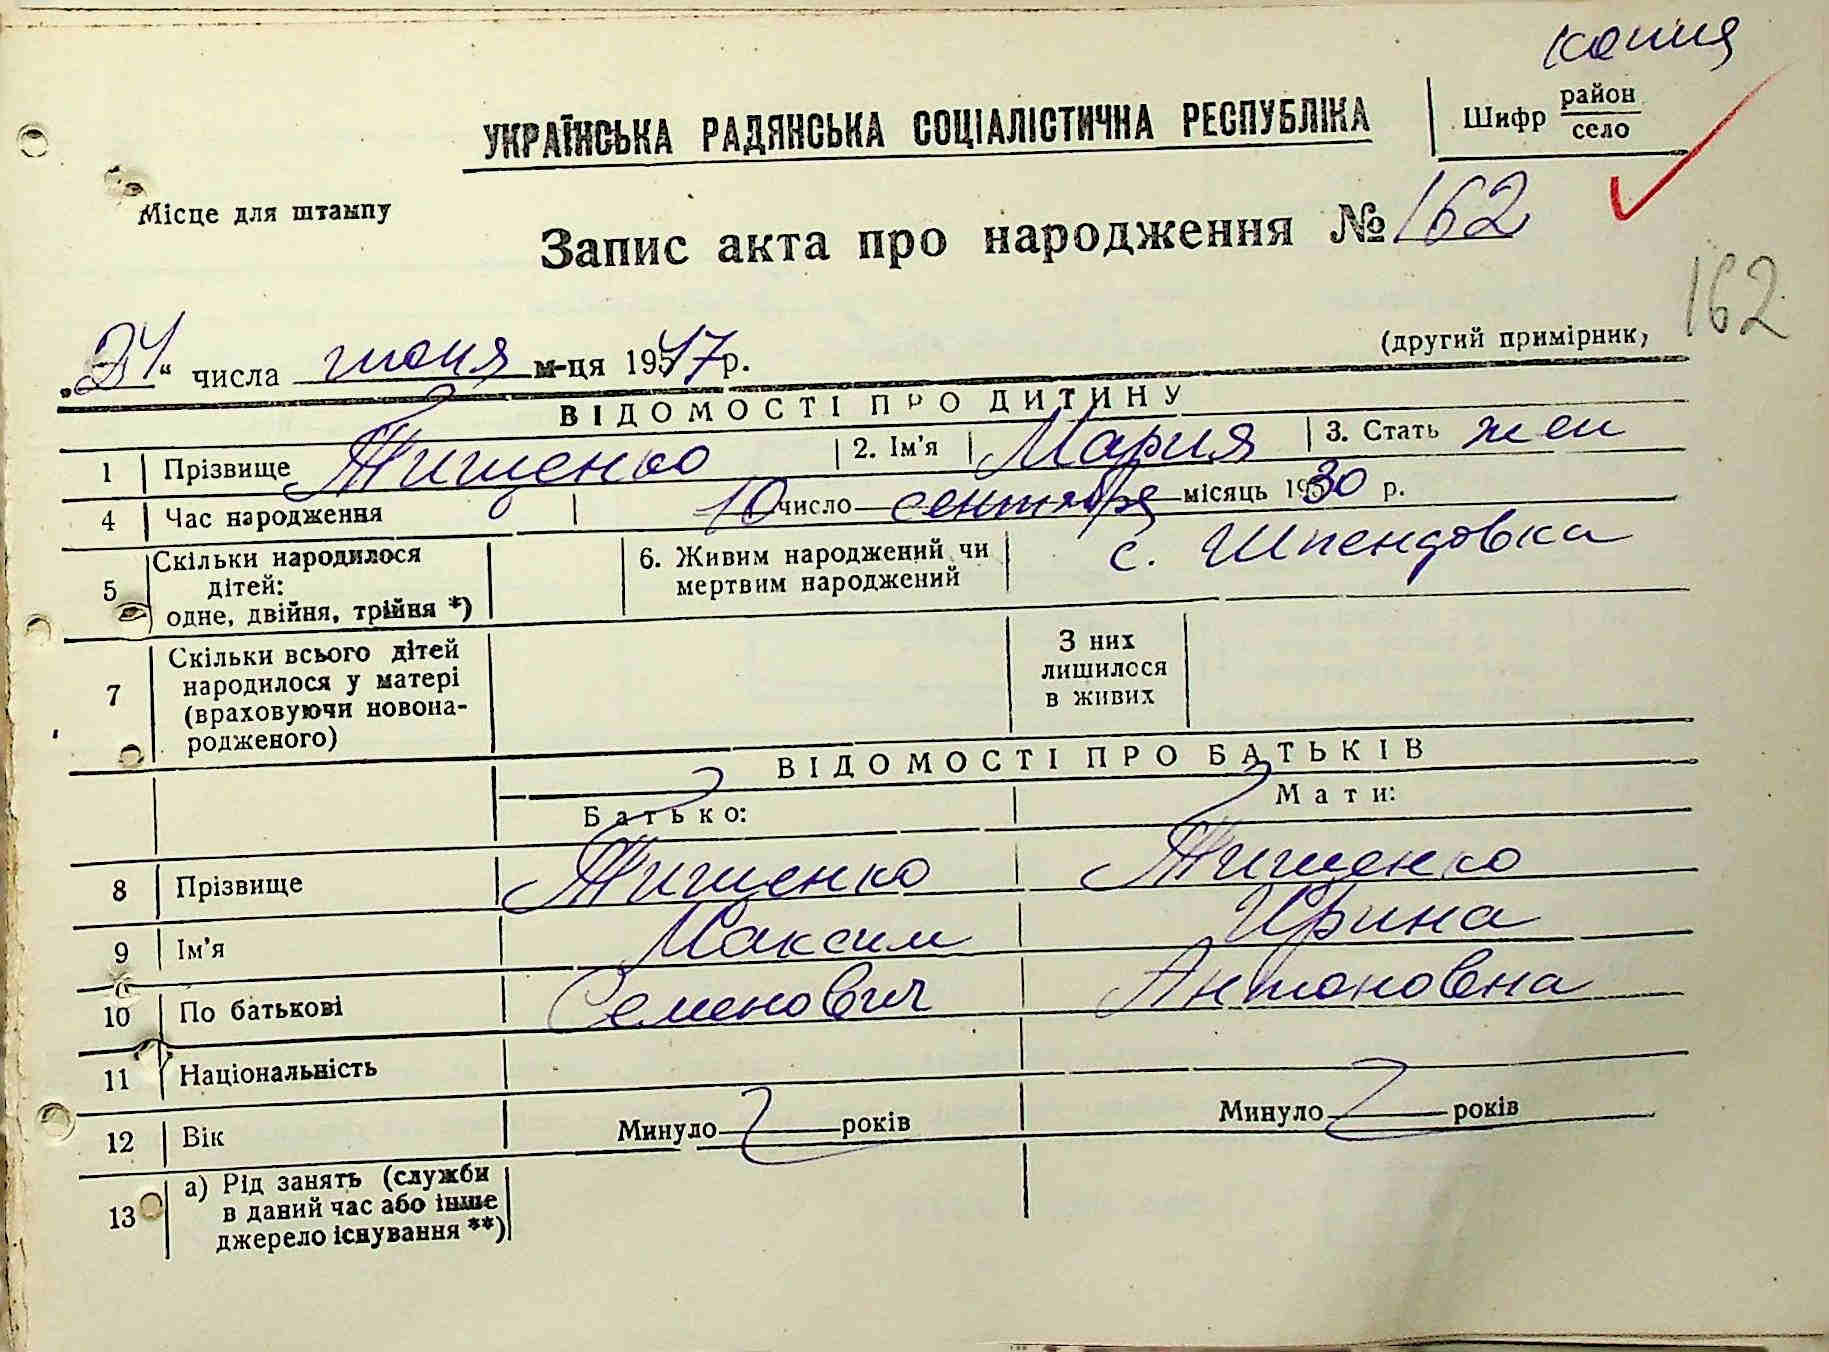 копия
УКРАЇНСЬКА РАДЯНСЬКА СОЦІАЛІСТИЧНА РЕСПУБЛІКА
Шифр район
село
Місце для штампу
Запис акта про народження № 162
162
„24“ числа июня м-ця 1947 р.
(другий примірник,
ВІДОМОСТІ ПРО ДИТИНУ
1 Прізвище Тищенко 2. Ім'я Мария 3. Стать жен
4 Час народження 10 число сентября місяць 1930 р.
5 Скільки народилося дітей: одне, двійня, трійня *) 6. Живим народжений чи мертвим народжений с. Шпендовка
7 Скільки всього дітей народилося у матері (враховуючи новона-родженого) З них лишилося в живих
ВІДОМОСТІ ПРО БАТЬКІВ
Батько: Мати:
8 Прізвище Тищенко Тищенко
9 Ім'я Максим Ирина
10 По батькові Семенович Антоновна
11 Національність
12 Вік Минуло років Минуло років
13 а) Рід занять (служби в даний час або інше джерело існування **)